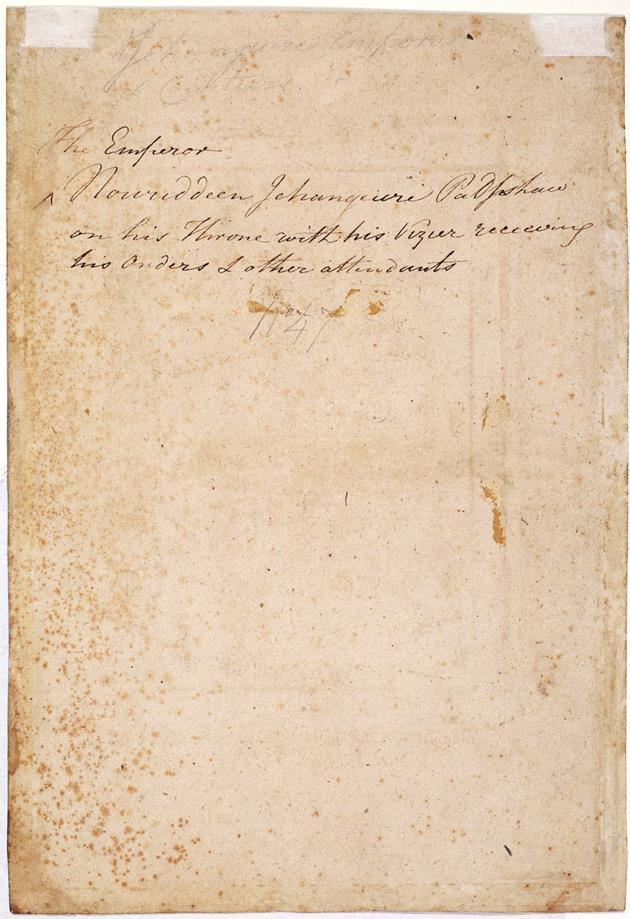 Jehanguire Emperor
The Emperor
^ Nouruddeen Jehanguire Padshaw
on his Throne with his Vizier receiving
his Orders & other attendants
No 47